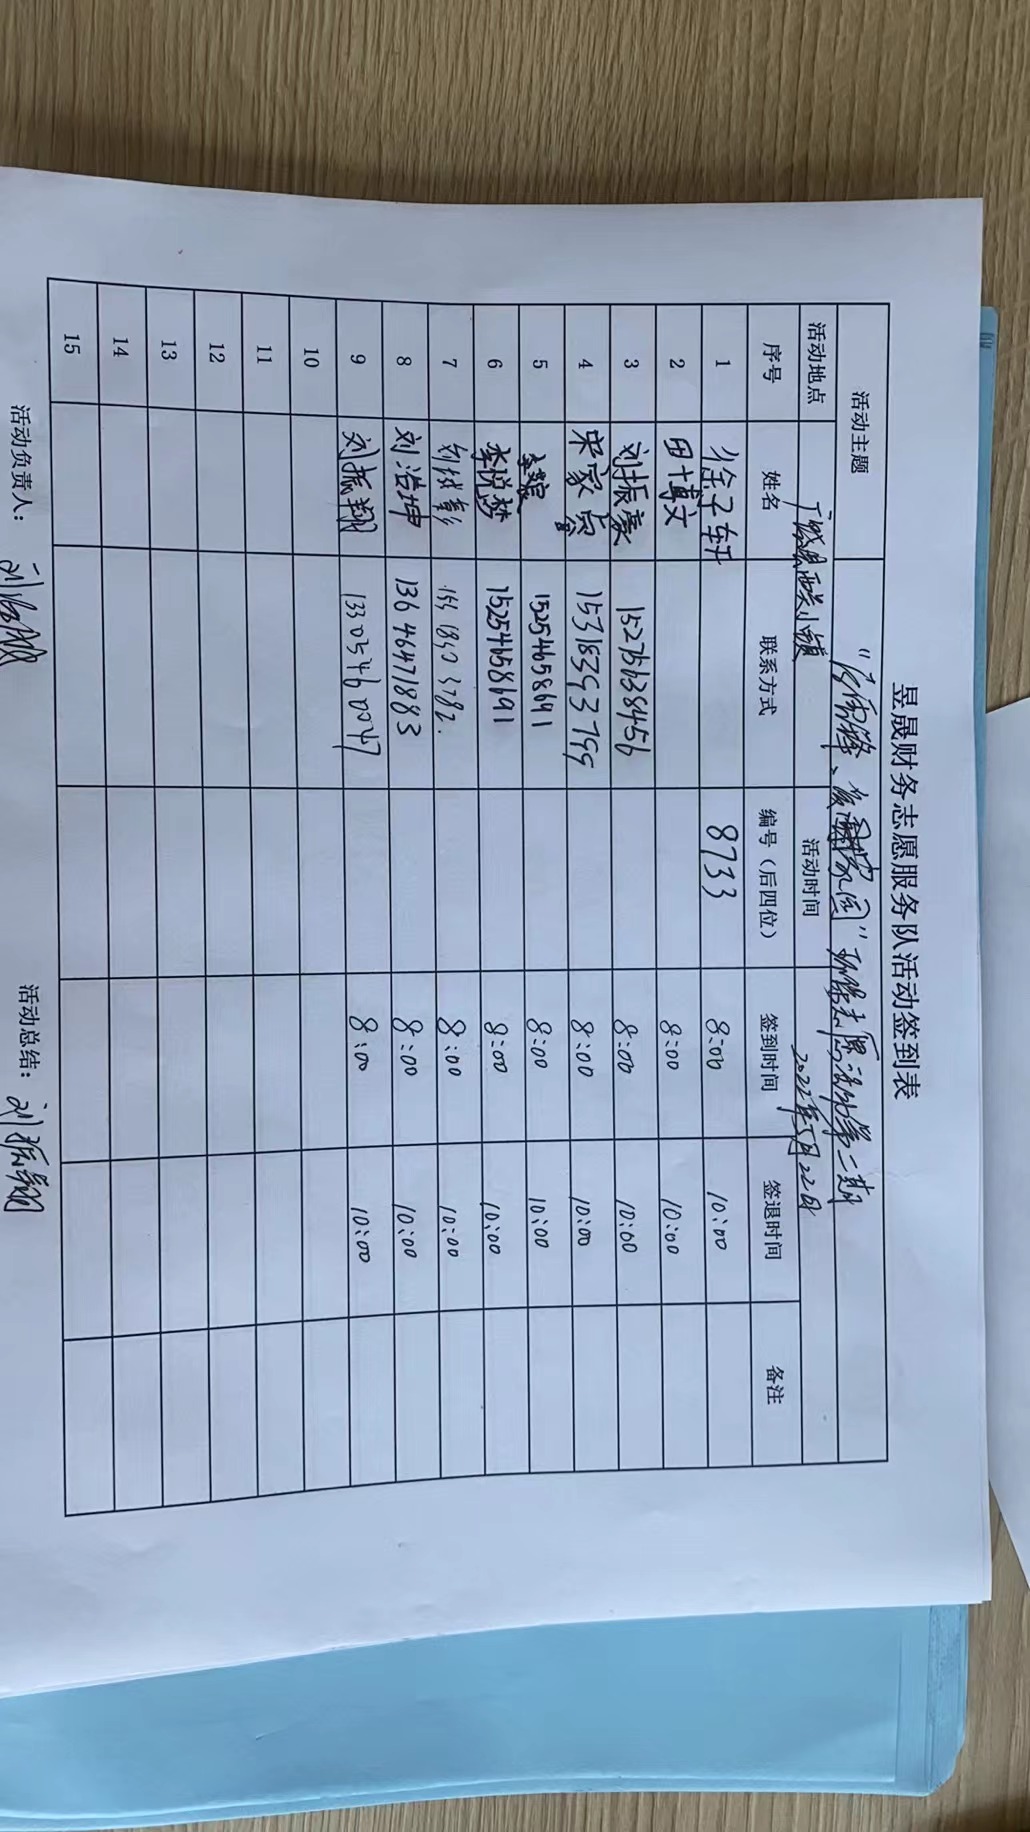 昱晟财务志愿服务队活动签到表
活动主题 环保志愿活动第二期
活动地点 广饶县西关小镇 活动时间 2022年5月22日
序号 姓名 联系方式 编号（后四位） 签到时间 签退时间 备注
1 徐子轩 8733 8:00 10:00
2 田博文 8:00 10:00
3 刘振豪 15275638456 8:00 10:00
4 宋家 15318393799 8:00 10:00
5 15254658691 8:00 10:00
6 李悦梦 15254658691 8:00 10:00
7 8:00 10:00
8 刘浩坤 13646471883 8:00 10:00
9 刘振翔 13305460047 8:00 10:00
10
11
12
13
14
15
活动负责人： 活动总结：刘振翔